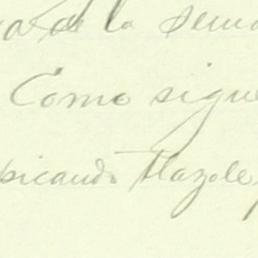 de la sema
Como sigue
picando tlazole